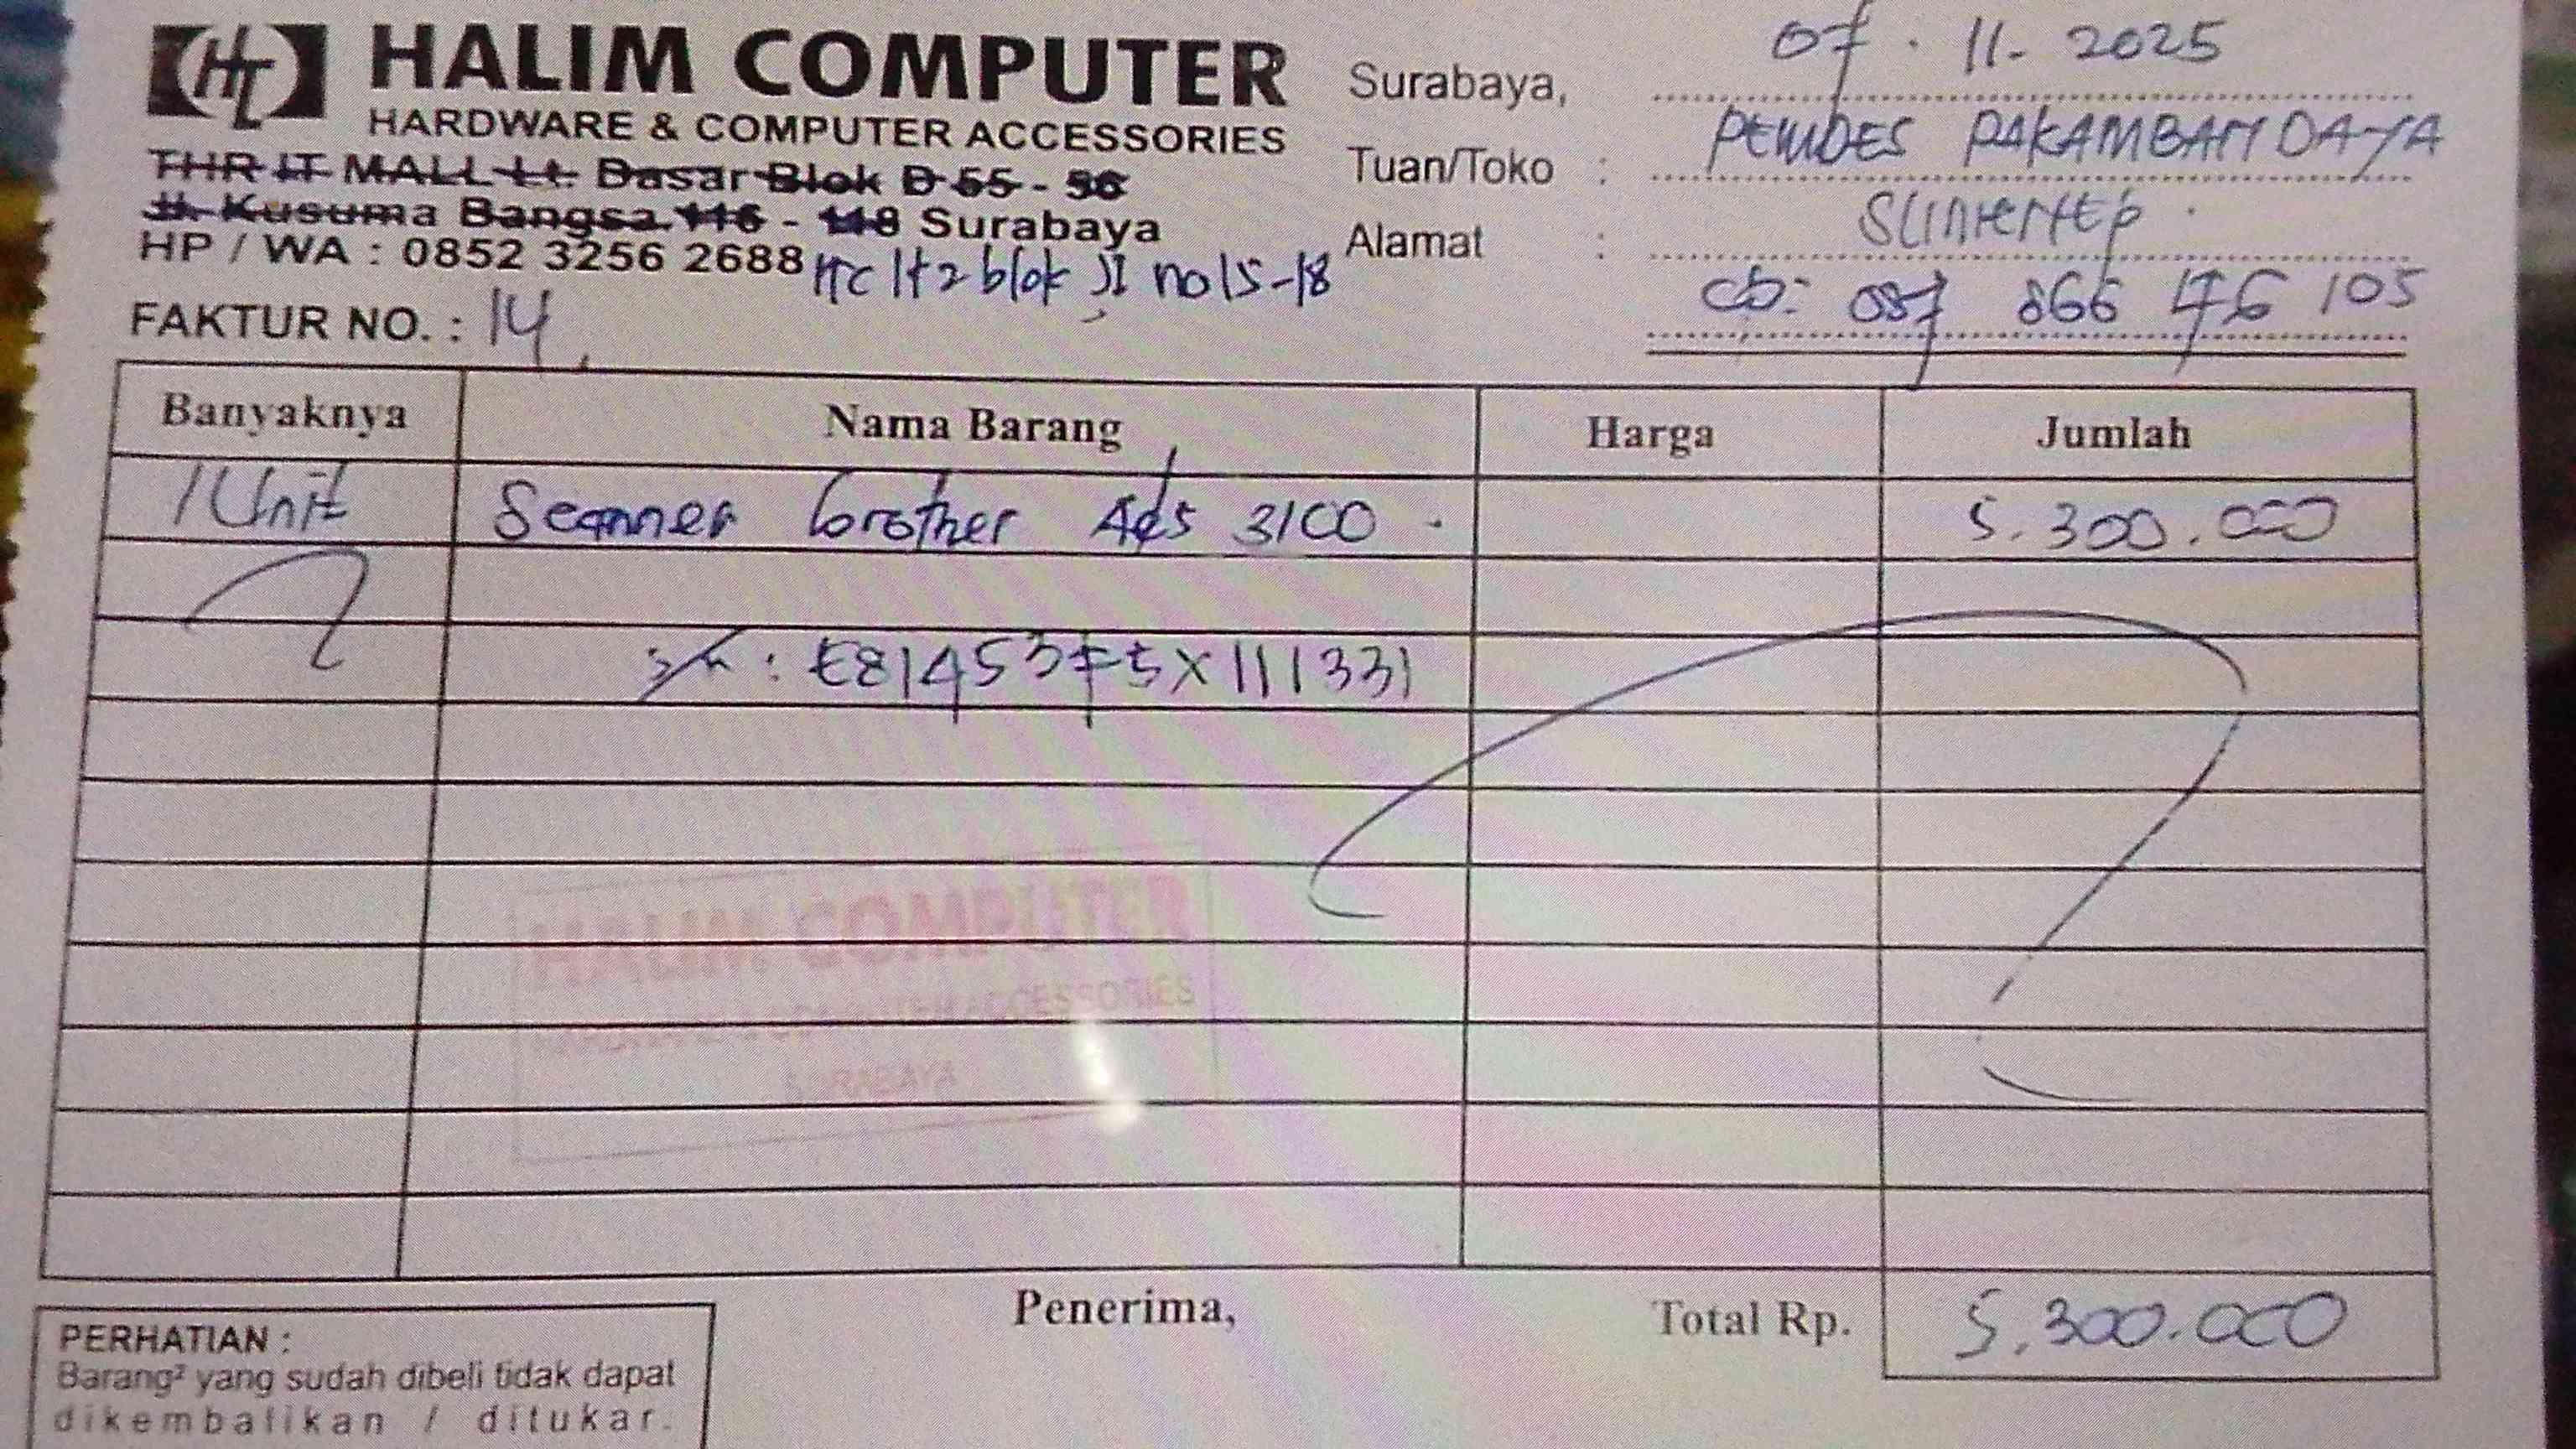 HL HALIM COMPUTER
HARDWARE & COMPUTER ACCESSORIES
THR IT MALL Lt. Dasar Blok D 55 - 56
Jl. Kusuma Bangsa 116 - 118 Surabaya
HP / WA : 0852 3256 2688
Htc lt 2 blok J1 no 15-18
FAKTUR NO. : 14
Surabaya, 07 . 11 - 2025
Tuan/Toko : PEMDES PAKAMBAN DAYA
Alamat : SUMENEP .
087 866 476 105
Banyaknya Nama Barang Harga Jumlah
1 Unit Scanner brother Ads 3100 . 5.300.000
S/n : E81453F5X111331
HALIM COMPUTER
HARDWARE & COMPUTER ACCESSORIES
SURABAYA
Penerima, Total Rp. 5.300.000
PERHATIAN :
Barang² yang sudah dibeli tidak dapat
dikembalikan / ditukar.